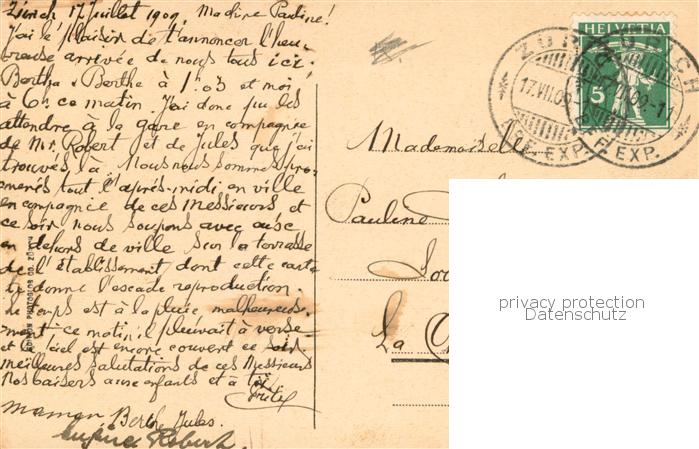 Zürich 17 Juillet 1909. Madame Pauline!
J'ai le plaisir de t'annoncer l'heu-
reuse arrivée de nous tous ici.
Bertha & Berthe à 1.03 et moi
à 6h. ce matin. J'ai donc pu les
attendre à la gare en compagnie
de Mr. Robert et de Jules que j'ai
trouvés là. Nous nous sommes pro-
menés tout l'après-midi en ville
en compagnie de ces Messieurs et
ce soir nous soupons avec
en dehors de ville sur la terrasse
de l'Etablissement dont cette carte
te donne l'escade reproduction.
Le temps est à la pluie malheureuse-
ment ce matin il pleuvait à verse
et le ciel est encore couvert ce soir
meilleures salutations de ces Messieurs
Nos baisers aux enfants et à toi
Fritz
maman Berthe Jules.
Eugénie Robert.
HELVETIA
5
ZÜRICH
17.VII.09
BRF. EXP.
Mademoiselle
Pauline
La
privacy protection
Datenschutz